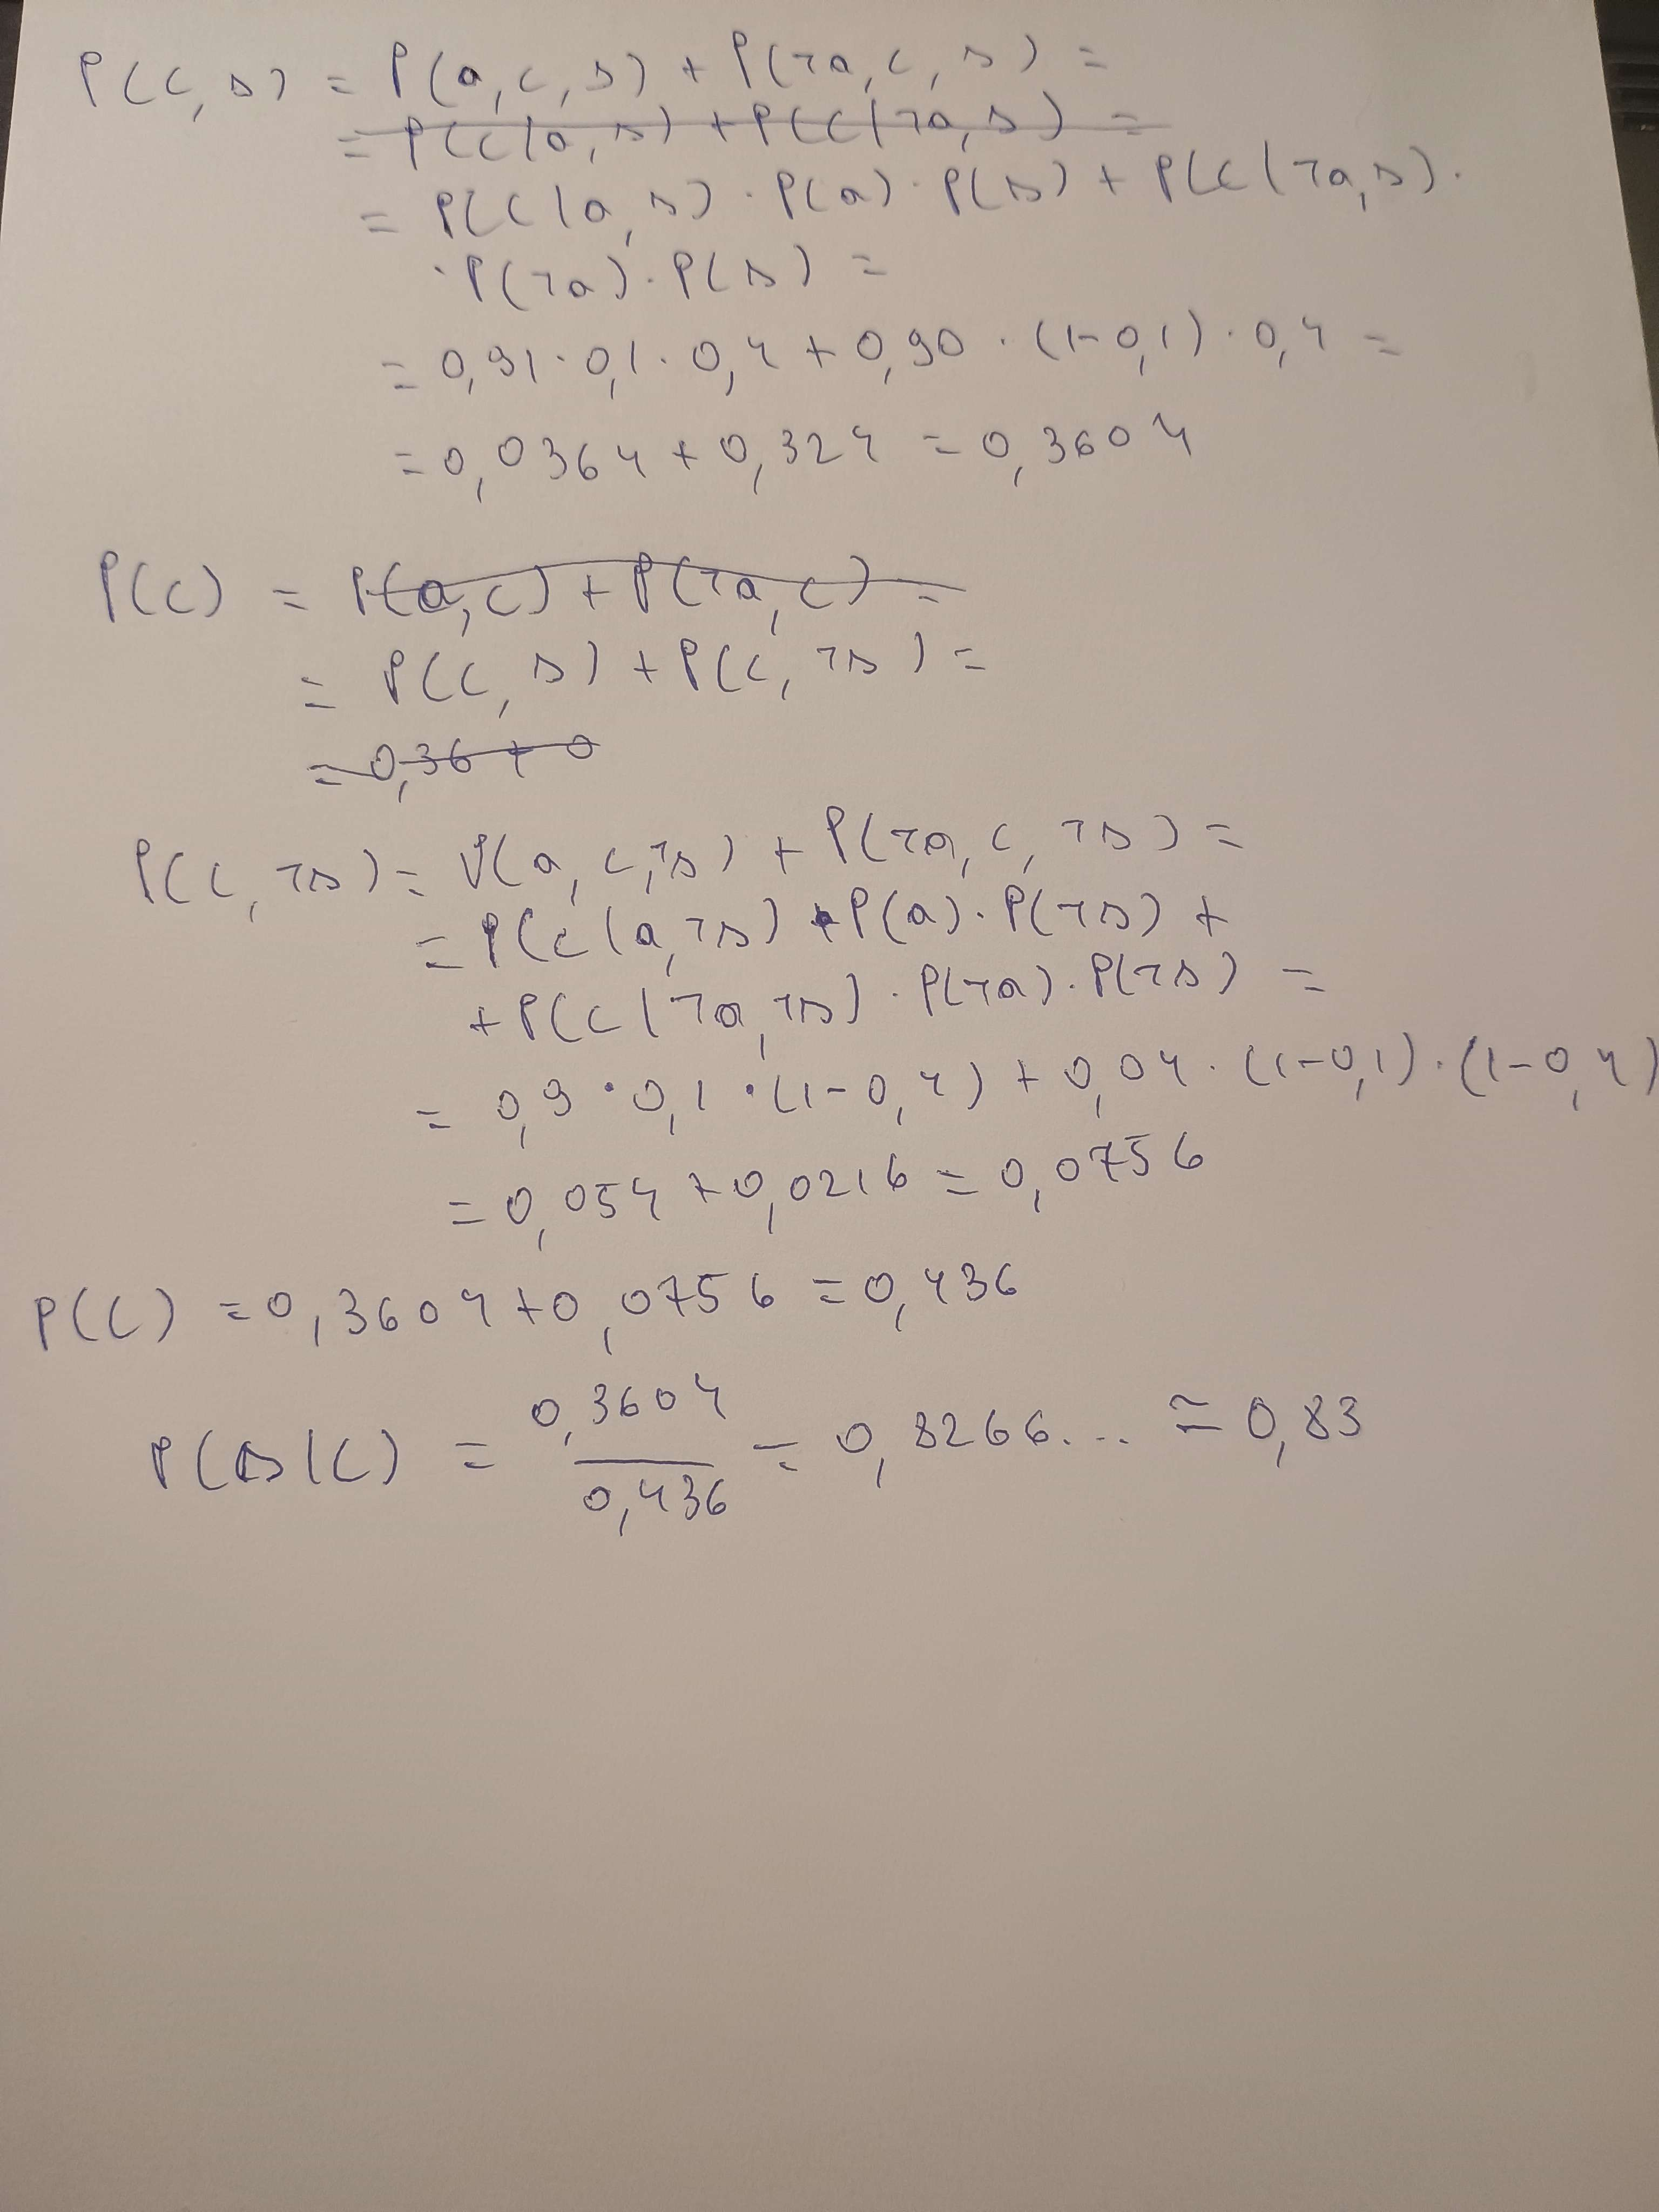 P(c, s) = P(a, c, s) + P(¬a, c, s) =
= P(c|a, s) + P(c|¬a, s) =
= P(c|a, s) · P(a) · P(s) + P(c|¬a, s) ·
· P(¬a) · P(s) =
= 0,91 · 0,1 · 0,4 + 0,90 · (1-0,1) · 0,4 =
= 0,0364 + 0,324 = 0,3604
P(c) = P(a, c) + P(¬a, c) =
= P(c, s) + P(c, ¬s) =
= 0,36 + 0
P(c, ¬s) = P(a, c, ¬s) + P(¬a, c, ¬s) =
= P(c|a, ¬s) · P(a) · P(¬s) +
+ P(c|¬a, ¬s) · P(¬a) · P(¬s) =
= 0,9 · 0,1 · (1-0,4) + 0,04 · (1-0,1) · (1-0,4)
= 0,054 + 0,0216 = 0,0756
P(c) = 0,3604 + 0,0756 = 0,436
P(s|c) = 0,3604 / 0,436 = 0,8266... ≅ 0,83